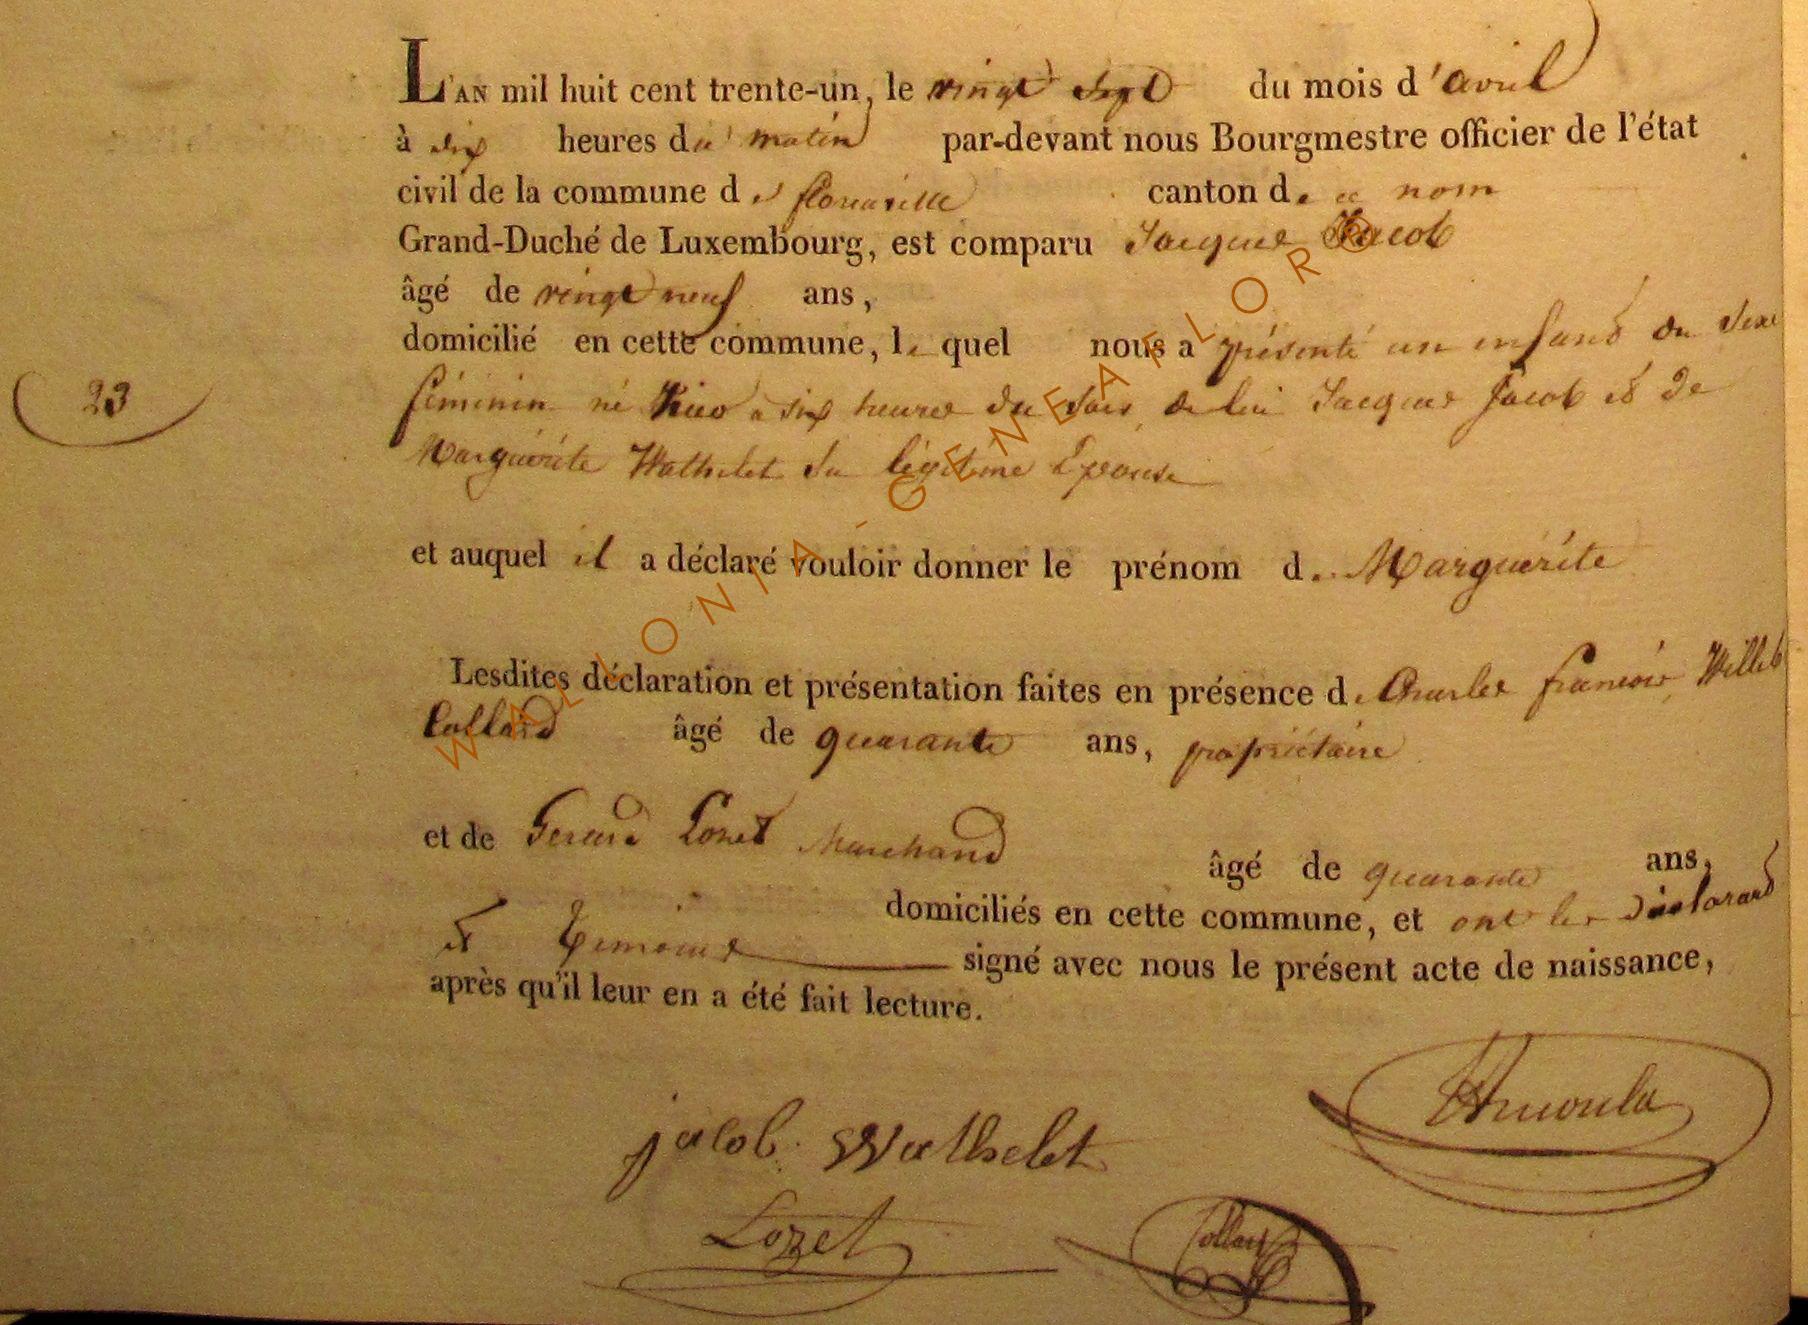 L'AN mil huit cent trente-un, le vingt sept du mois d'avril
à dix heures du matin par-devant nous Bourgmestre officier de l'état
civil de la commune de florenville canton de ce nom
Grand-Duché de Luxembourg, est comparu Jacques Jacob
âgé de vingt neuf ans,
domicilié en cette commune, le quel nous a présenté un enfant du sexe
23
féminin né hier à six heures du soir de lui Jacques Jacob et de
Marguérite Wathelet sa légitime Epouse
et auquel il a déclaré vouloir donner le prénom de Marguérite
Lesdites déclaration et présentation faites en présence de Charles françois
Collard âgé de quarante ans, propriétaire
et de Gerard Lozet Marchand âgé de quarante ans,
domiciliés en cette commune, et ont les déclarant
et Temoins signé avec nous le présent acte de naissance,
après qu'il leur en a été fait lecture.
jacob Wathelet
Lozet Collard
WALLONIA-GENEAFLOR